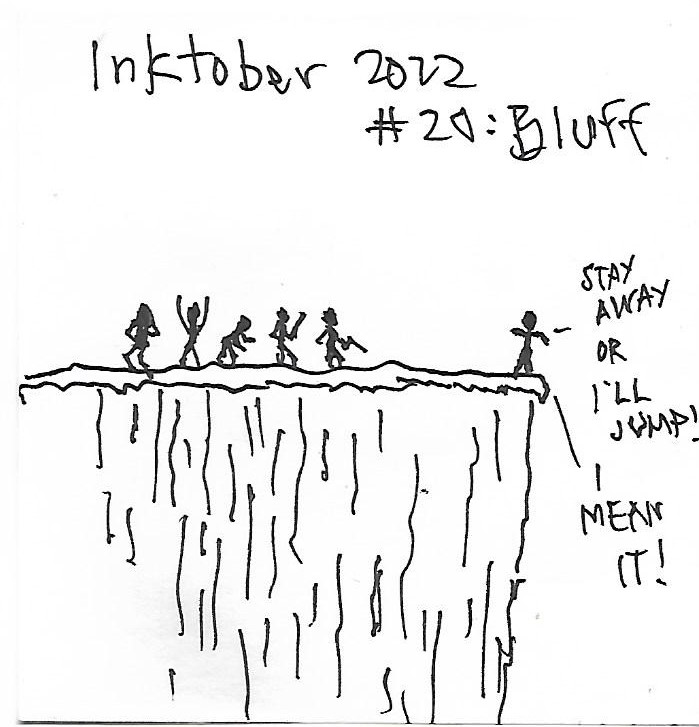 Inktober 2022
#20: Bluff
STAY
AWAY
OR
I'LL
JUMP!
I
MEAN
IT!